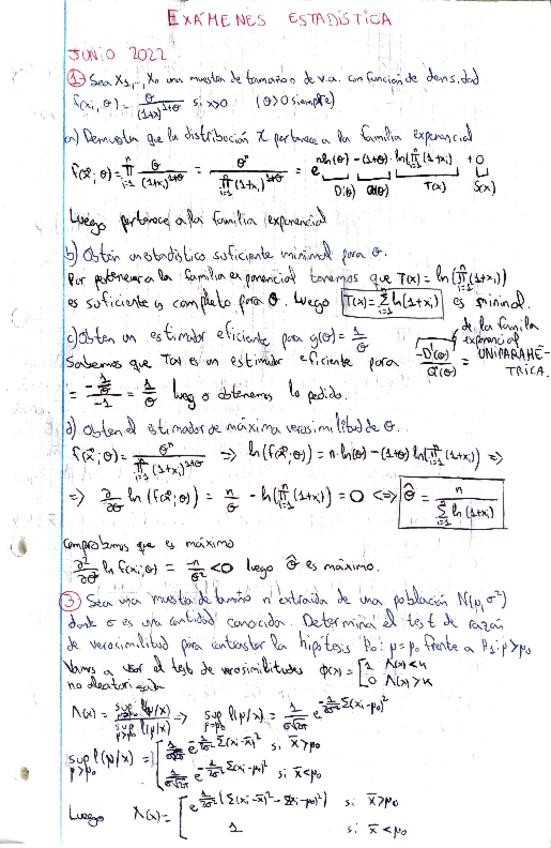 EXÁMENES ESTADÍSTICA
JUNIO 2022
① Sea X₁,...,Xₙ una muestra de tamaño n de v.a. con función de densidad
f(xᵢ, θ) = θ/(1+x)^(1+θ) si x>0 (θ>0 siempre)
a) Demuestra que la distribución X pertenece a la familia exponencial
f(x⃗; θ) = ∏ᵢ₌₁ⁿ θ/(1+xᵢ)^(1+θ) = θⁿ/∏ᵢ₌₁ⁿ(1+xᵢ)^(1+θ) = e^(n ln(θ) - (1+θ)·ln(∏ᵢ₌₁ⁿ(1+xᵢ)) + 0)
D(θ) Q(θ) T(x) S(x)
Luego pertenece a la familia exponencial
b) Obtén un estadístico suficiente minimal para θ.
Por pertenecer a la familia exponencial tenemos que T(x) = ln(∏ᵢ₌₁ⁿ(1+xᵢ))
es suficiente y completo para θ. Luego T(x) = ∑ᵢ₌₁ⁿ ln(1+xᵢ) es minimal.
c) Obtén un estimador eficiente para g(θ) = 1/θ
de la familia exponencial UNIPARAMÉTRICA.
Sabemos que T(x) es un estimador eficiente para -D'(θ)/Q'(θ) =
= luego obtenemos lo pedido.
d) Obten el estimador de máxima verosimilitud de θ.
f(x⃗; θ) = θⁿ/∏ᵢ₌₁ⁿ(1+xᵢ)^(1+θ) ⇒ ln(f(x⃗; θ)) = n·ln(θ) - (1+θ) ln(∏ᵢ₌₁ⁿ(1+xᵢ)) ⇒
⇒ ∂/∂θ ln(f(x⃗; θ)) = n/θ - ln(∏ᵢ₌₁ⁿ(1+xᵢ)) = 0 ⇔ θ̂ = n/∑ᵢ₌₁ⁿ ln(1+xᵢ)
Comprobamos que es máximo
∂²/∂θ ln f(xᵢ; θ) = -n/θ² < 0 luego θ̂ es máximo.
③ Sea una muestra de tamaño n extraída de una población N(μ, σ²)
donde σ es una cantidad conocida. Determina el test de razón
de verosimilitud para contrastar la hipótesis H₀: μ = μ₀ frente a H₁: μ > μ₀
Vamos a usar el test de verosimilitudes φ(x) = [1 Λ(x)<k
no aleatorizado 0 Λ(x)>k
Λ(x) = sup l(μ/x) / sup l(μ/x) ⇒ sup μ=μ₀ l(μ/x) = 1/(σ√2π) e^(-1/2σ² Σ(xᵢ-μ₀)²)
sup μ>μ₀ l(μ/x) = [1/(σ√2π) e^(-1/2σ² Σ(xᵢ-x̄)²) si x̄>μ₀
1/(σ√2π) e^(-1/2σ² Σ(xᵢ-μ₀)²) si x̄<μ₀
Luego Λ(x) = [e^(1/2σ² (Σ(xᵢ-x̄)² - Σ(xᵢ-μ₀)²)) si x̄>μ₀
1 si x̄<μ₀